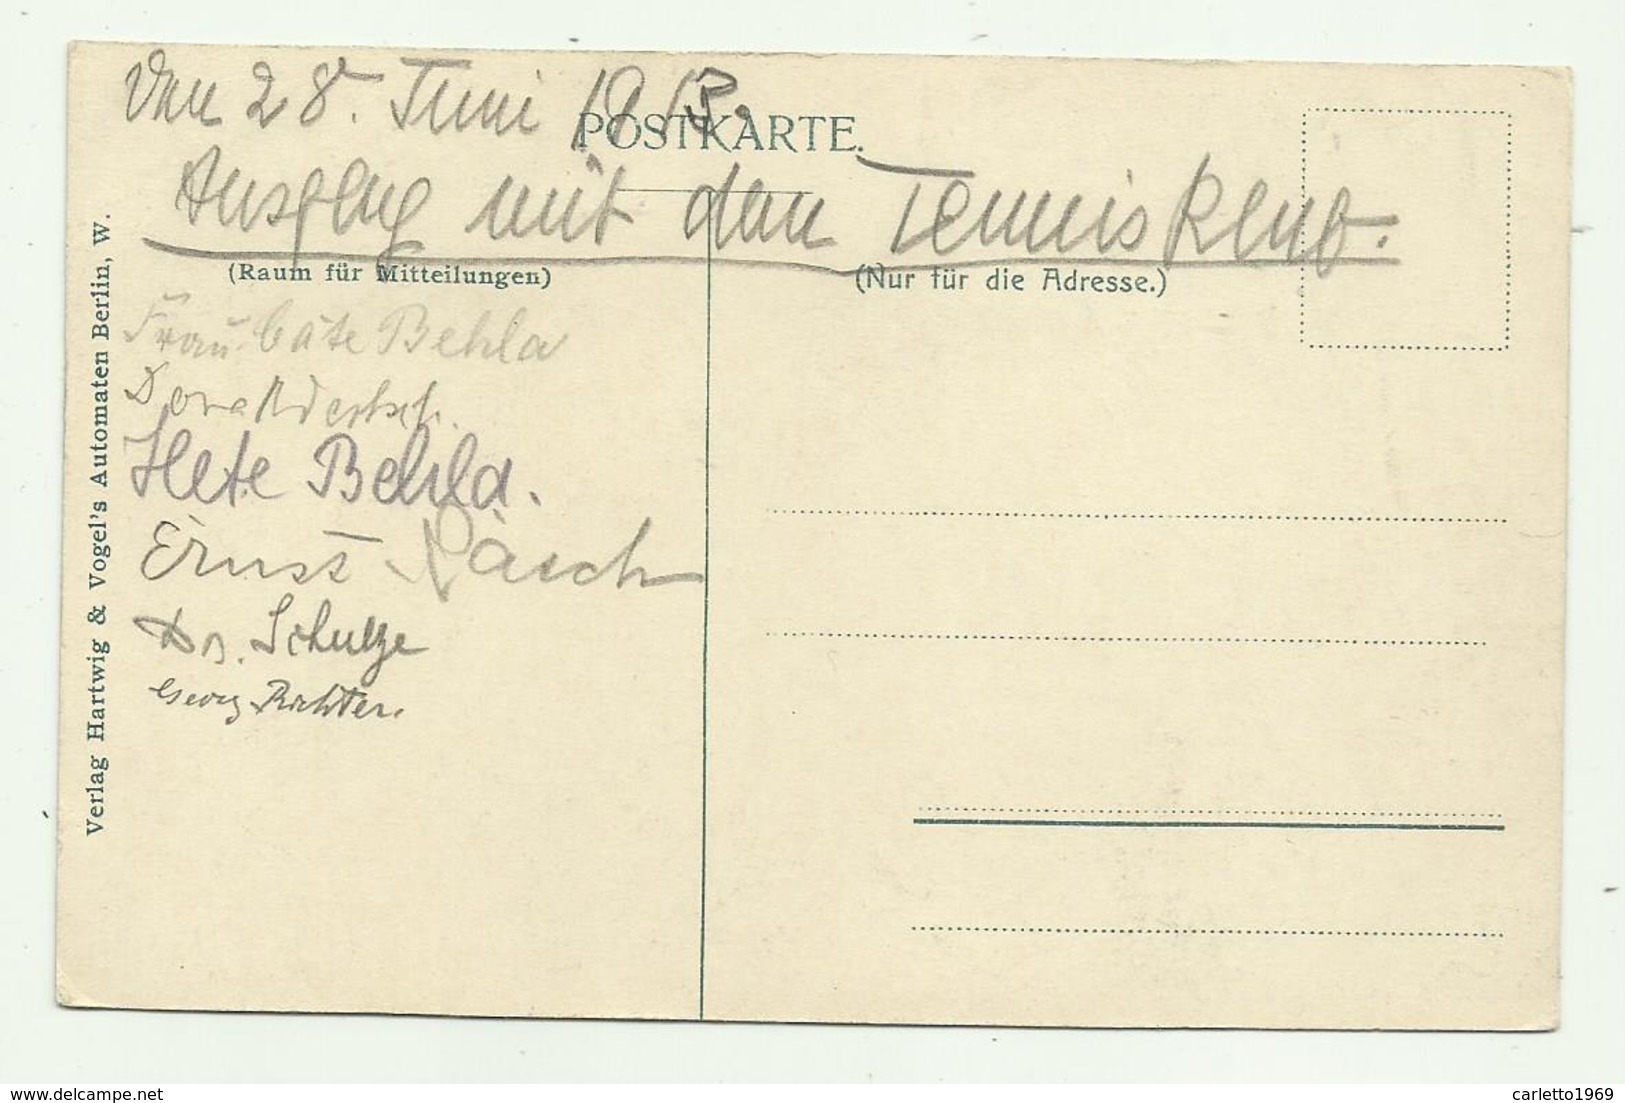 Den 28. Juni 1913.
POSTKARTE.
Ausflug mit dem Tennisklub.
(Raum für Mitteilungen)
(Nur für die Adresse.)
Frau Käte Behla
Dora
Hete Behla.
Ernst Päsch
Dr. Schulze
Georg Richter.
Verlag Hartwig & Vogel's Automaten Berlin, W.
delcampe.net
carletto1969